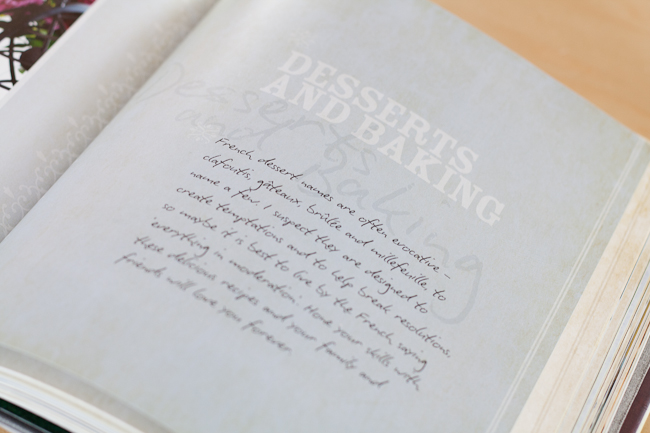 DESSERTS
AND BAKING
Desserts
and Baking
French dessert names are often evocative –
clafoutis, gâteaux, brûlée and millefeuille, to
name a few. I suspect they are designed to
create temptations and to help break resolutions,
so maybe it is best to live by the French saying
'everything in moderation'. Hone your skills with
these delicious recipes and your family and
friends will love you forever.